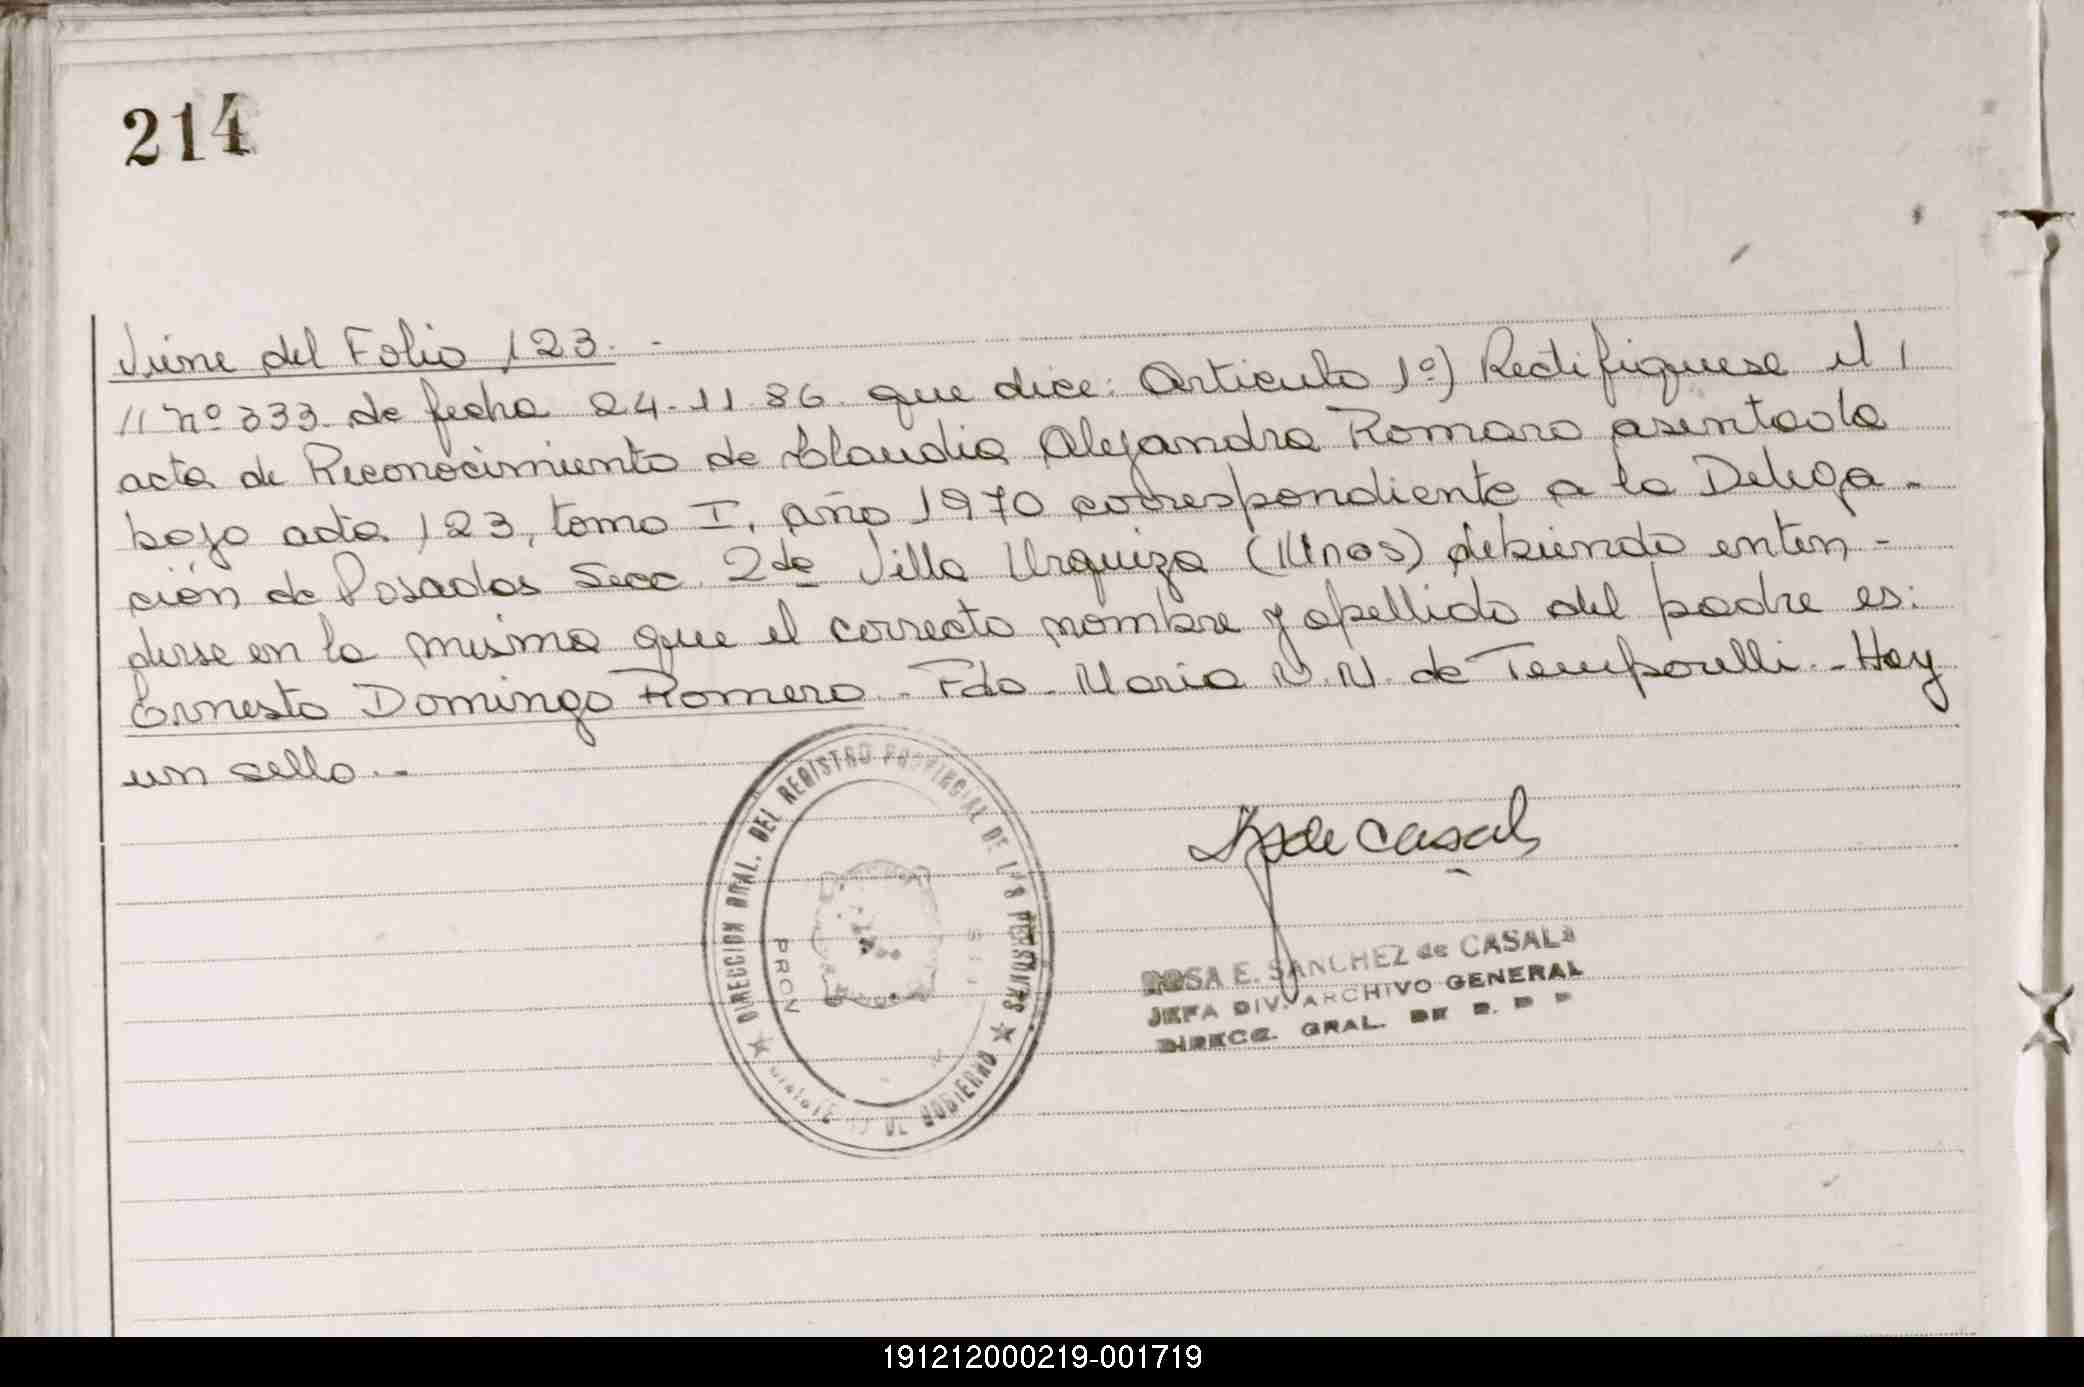 214
Viene del Folio 123. -
// nº 333. de fecha 24.11.86. que dice: Articulo 1º) Rectifiquese el /
acta de Reconocimiento de Claudia Alejandra Romaro asentada
bajo acta 123, tomo I, año 1970 correspondiente a la Delega-
ción de Posadas Secc. 2da Villa Urquiza (Mnes) debiendo enten-
derse en la misma que el correcto nombre y apellido del padre es:
Ernesto Domingo Romero. Fdo. Maria N.N. de Temporelli. - Hay
un sello. -
DIRECCION GRAL. DEL REGISTRO PROVINCIAL DE LAS PERSONAS
GOBIERNO
PROV
de Casal
ROSA E. SANCHEZ de CASALS
JEFA DIV. ARCHIVO GENERAL
DIRECC. GRAL. DE R. P. P.
191212000219-001719